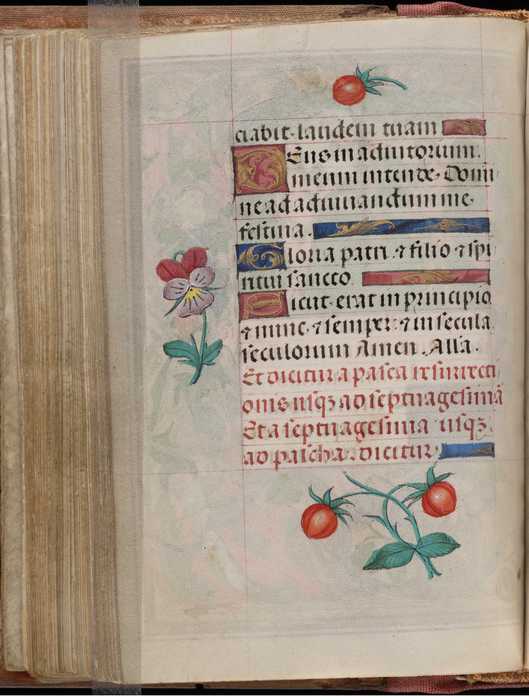 ciabit laudem tuam
Deus in adiutorium
meum intende. Domi
ne ad adiuuandum me
festina.
Gloria patri. ⁊ filio ⁊ spi
ritui sancto
Sicut erat in principio
⁊ nunc ⁊ semper ⁊ in secula
seculorum Amen. Alla.
Et dicitur a pasca resurrecti
onis usqꝫ ad septuagesimā
Et a septuagesima usqꝫ
ad pascha. dicitur